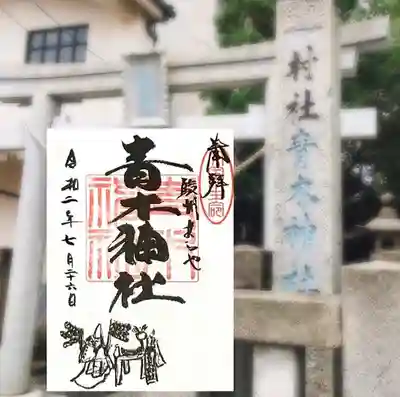 村社青木神社
奉拝
駿州
青木神社
令和二年七月二十六日